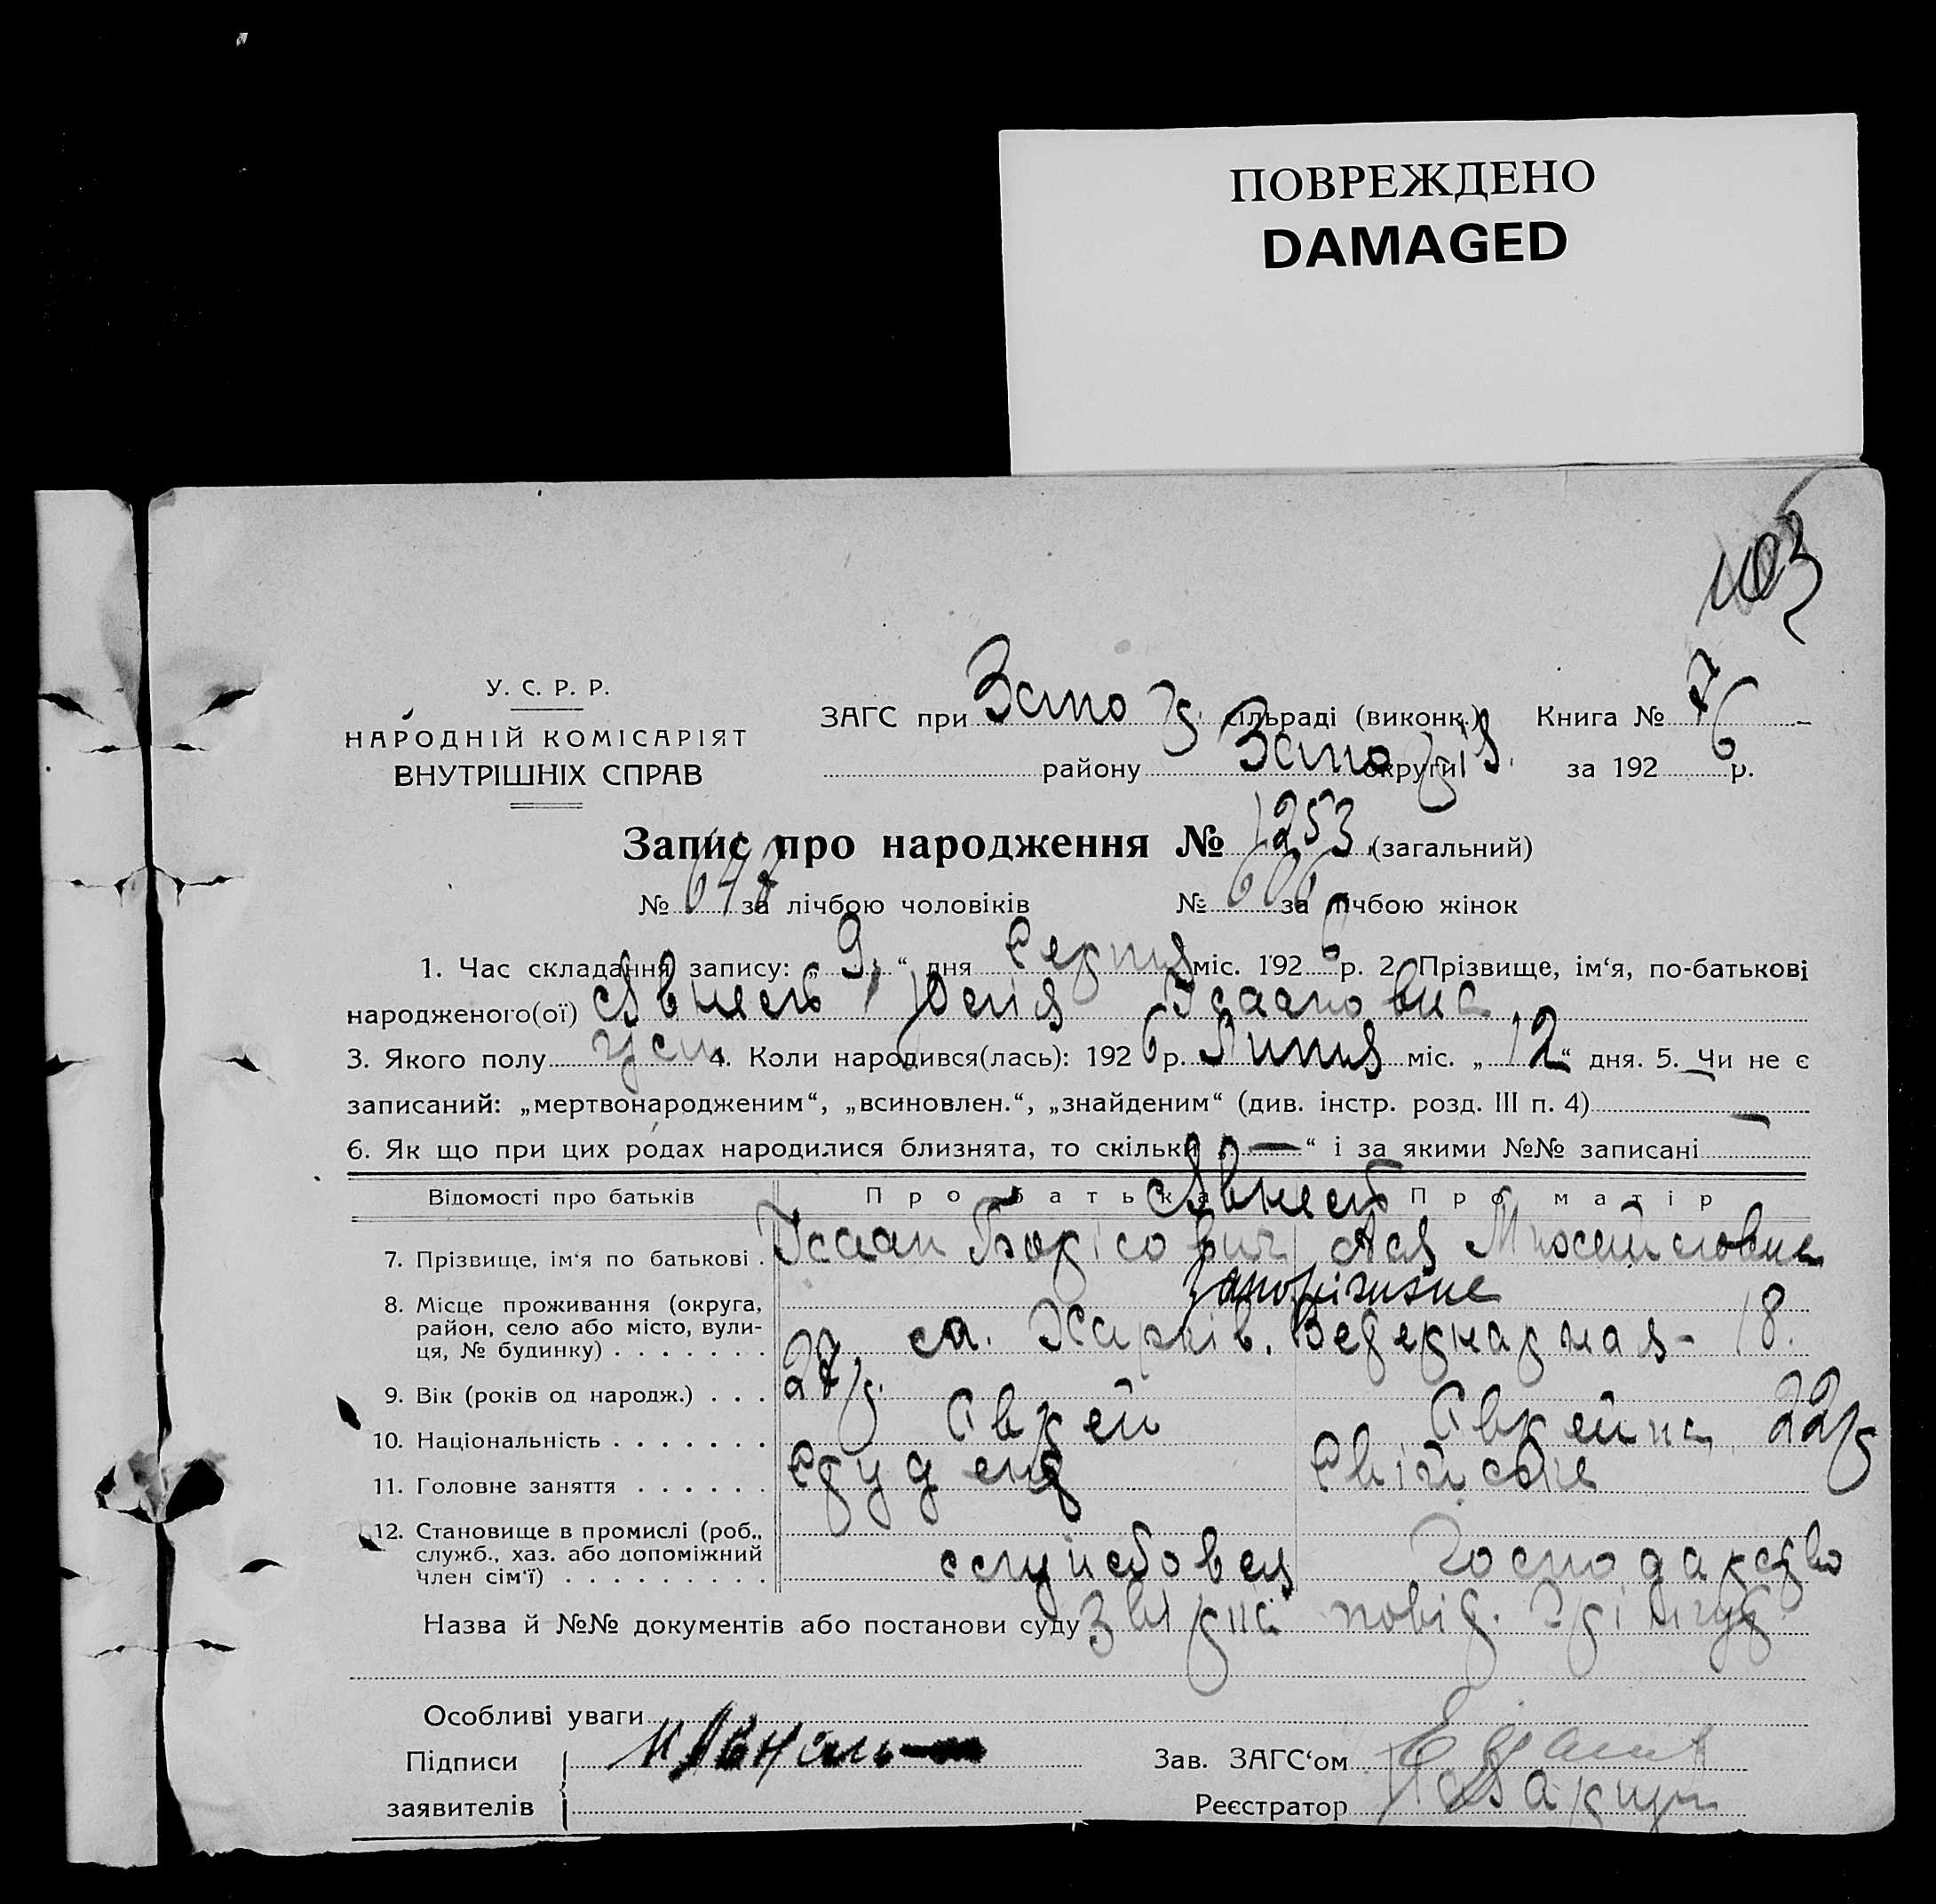 ПОВРЕЖДЕНО
DAMAGED
103
У. С. Р. Р.
НАРОДНІЙ КОМІСАРІЯТ
ВНУТРІШНІХ СПРАВ
ЗАГС при Запо сільраді (виконк.) Книга № 7
району Запо округи за 192 6 р.
Запис про народження № 1253 (загальний)
№ 647 за лічбою чоловіків № 606 за лічбою жінок
1. Час складання запису: „ 9 “ дня Серпня міс. 192 6 р. 2. Прізвище, ім‘я, по-батькові
народженого(ої) Юлія
3. Якого полу 4. Коли народився(лась): 192 6 р. Липня міс. „ 12 “ дня. 5. Чи не є
записаний: „мертвонародженим“, „всиновлен.“, „знайденим“ (див. інстр. розд. III п. 4) —
6. Як що при цих родах народилися близнята, то скільки „ — “ і за якими №№ записані
Відомості про батьків Про батька Про матір
7. Прізвище, ім‘я по батькові . Ісаак Борісович Ася
8. Місце проживання (округа, Запоріжжя
район, село або місто, вули- ст. Харків. 18.
ця, № будинку) . . . . . . .
9. Вік (років од народж.) . . . 27 22
10. Національність . . . . . . . Єврей Єврейка
11. Головне заняття . . . . . . Студент Свійське
12. Становище в промислі (роб., службовця господарство
служб., хаз. або допоміжний
член сім‘ї) . . . . . . . . .
Назва й №№ документів або постанови суду повід.
Особливі уваги
Підписи
заявителів
Зав. ЗАГС‘ом
Реєстратор